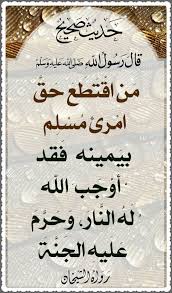 حديث صحيح
قال رسول الله صلى الله عليه وسلم
من اقتطع حق
امرئ مسلم
بيمينه فقد
أوجب الله
له النار، وحرم
عليه الجنة
رواه الشيخان